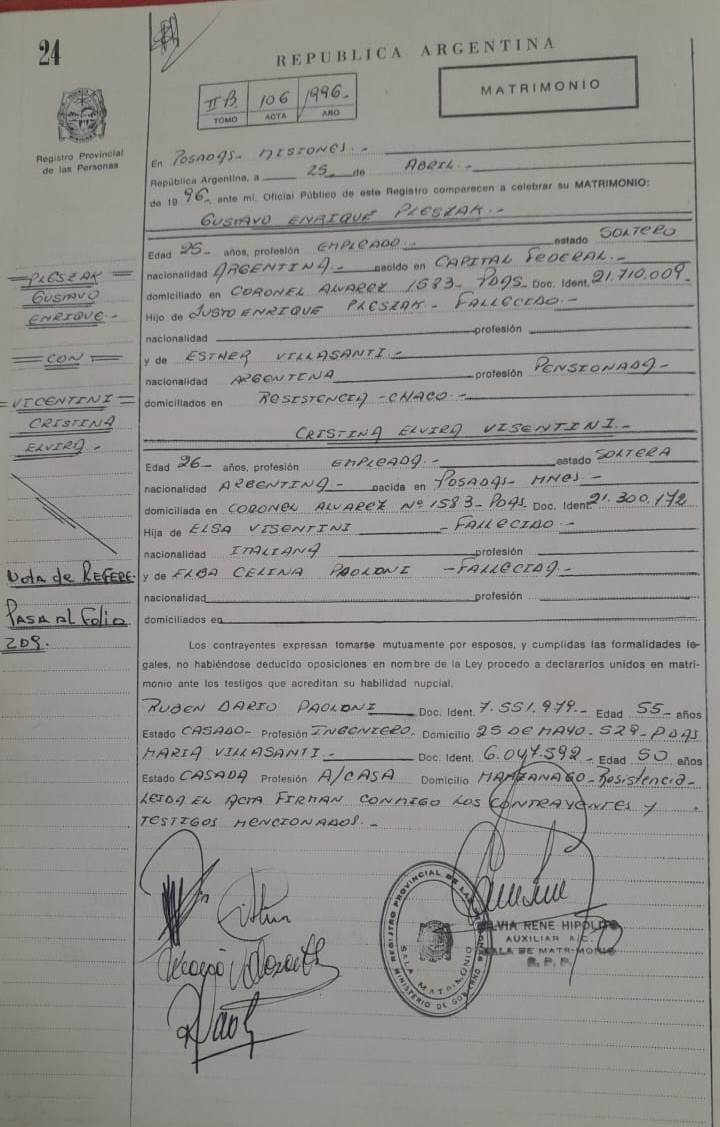 24
REPUBLICA ARGENTINA
MATRIMONIO
II B. 106 1996-
TOMO ACTA AÑO
Registro Provincial
de las Personas
En POSADAS- MISIONES.-
República Argentina, a 25 de ABRIL.-
de 19 96, ante mi, Oficial Público de este Registro comparecen a celebrar su MATRIMONIO:
GUSTAVO ENRIQUE PLESZAK.-
Edad 25- años, profesión EMPLEADO.- estado SOLTERO
nacionalidad ARGENTINA.- nacido en CAPITAL FEDERAL.-
domiciliado en CORONEL ALVAREZ 1583- PDAS- Doc. Ident. 21.710.009-
Hijo de JUSTO ENRIQUE PLESZAK- FALLECIDO.-
nacionalidad profesión
y de ESTHER VILLASANTI.-
nacionalidad ARGENTINA profesión PENSIONADA-
domiciliados en RESISTENCIA-CHACO.-
CRISTINA ELVIRA VISENTINI.-
Edad 26- años, profesión EMPLEADA.- estado SOLTERA
nacionalidad ARGENTINA- nacida en POSADAS- MNES-
domiciliada en CORONEL ALVAREZ Nº 1583- PDAS Doc. Ident. 21.300.172
Hija de ELSA VISENTINI -FALLECIDO.-
nacionalidad ITALIANA profesión
y de ELBA CELINA PAOLONI -FALLECIDA-
nacionalidad profesión
domiciliados en
PLESZAK
GUSTAVO
ENRIQUE-
CON
VICENTINI
CRISTINA
ELVIRA-
Nota de REFERE-
PASA AL Folio
209.
Los contrayentes expresan tomarse mutuamente por esposos, y cumplidas las formalidades le-
gales, no habiéndose deducido oposiciones en nombre de la Ley procedo a declararlos unidos en matri-
monio ante los testigos que acreditan su habilidad nupcial.
RUBEN DARIO PAOLONI Doc. Ident. 7.551.979.- Edad 55- años
Estado CASADO- Profesión INGENIERO. Domicilio 25 DE MAYO-529-PDAS
MARIA VILLASANTI- Doc. Ident. 6.047.592- Edad 50 años
Estado CASADA Profesión A/CASA Domicilio MANZANA 60-Resistencia-
LEIDA EL ACTA FIRMAN CONMIGO LOS CONTRAYENTES Y
TESTIGOS MENCIONADOS.-
REGISTRO PROVINCIAL DE LAS PERSONAS
SALA MATRIMONIO
MINISTERIO DE GOBIERNO
SILVIA RENE HIPOLITO
AUXILIAR A/C.
SALA DE MATRIMONIO
R. P. P.